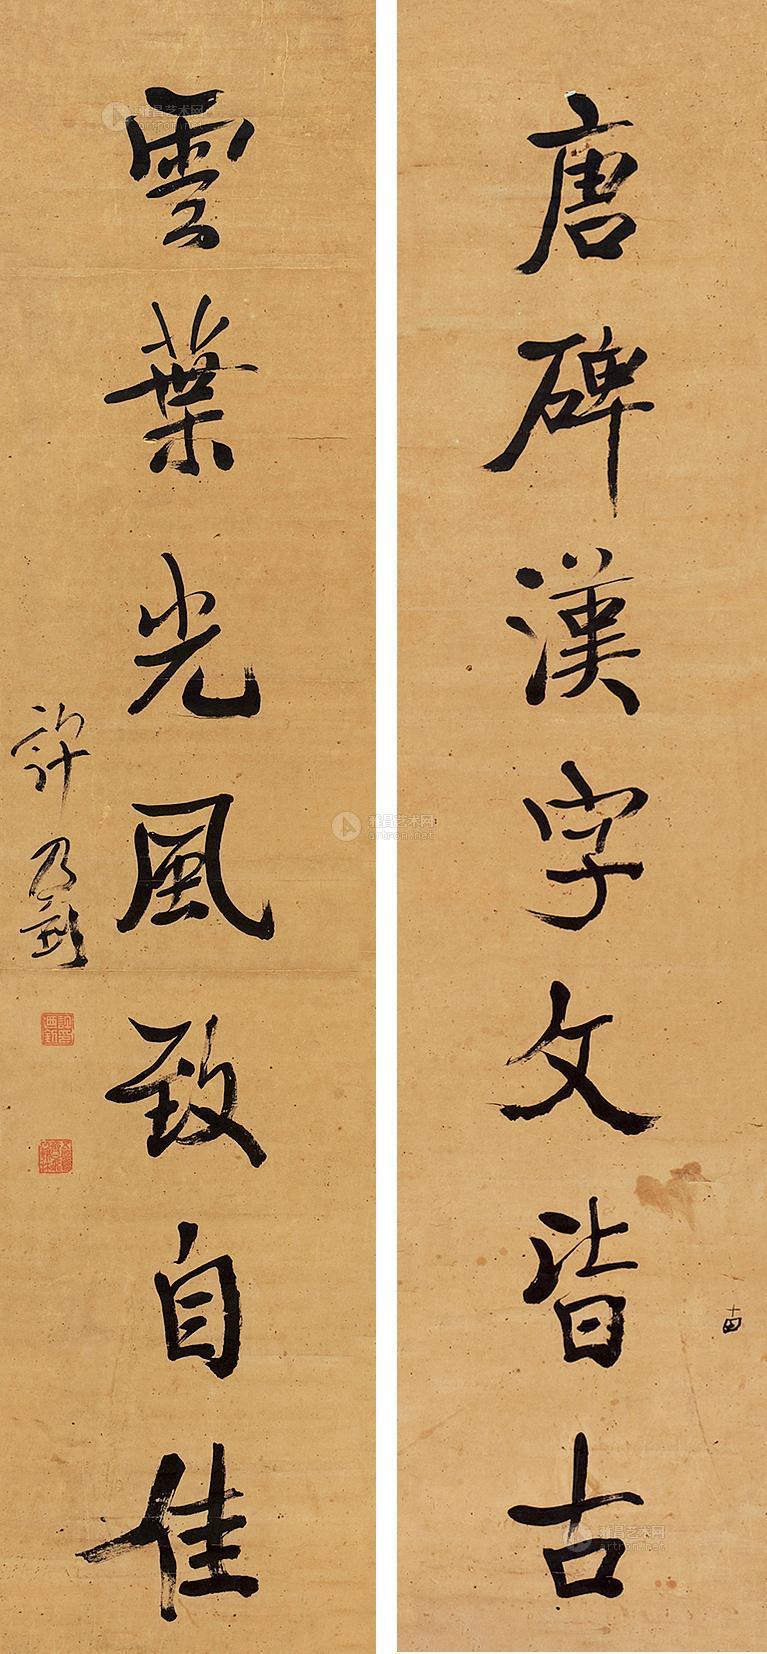 唐碑漢字文皆古
雲葉光風致自佳
許乃釗
雅昌艺术网
artron.net